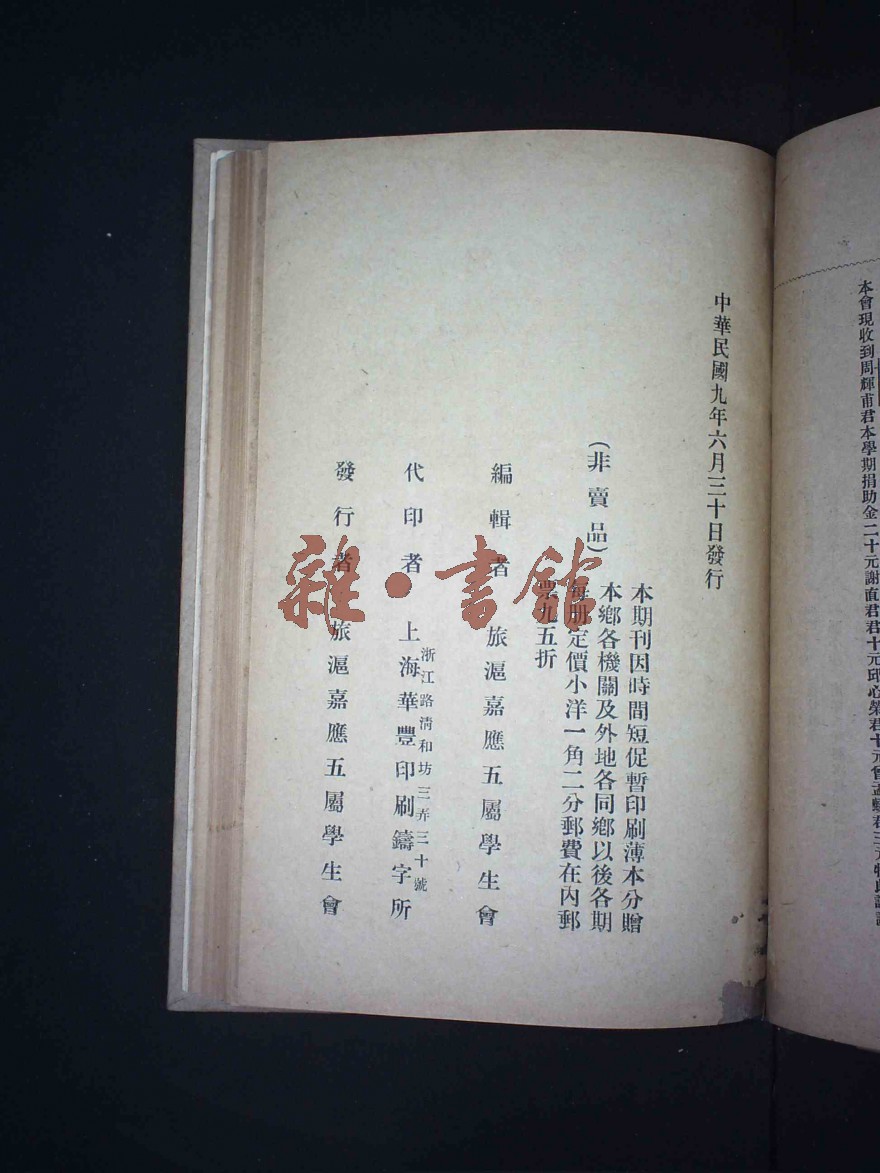 本會現收到周輝甫君本學期捐助金二十元謝直君君十元邱心榮君十元曾孟
中華民國九年六月三十日發行
(非賣品)
本期刊因時間短促暫印刷薄本分贈
本鄉各機關及外地各同鄉以後各期
每册定價小洋一角二分郵費在內郵
票九五折
編輯者 旅滬嘉應五屬學生會
浙江路淸和坊三弄三十號
代印者 上海華豐印刷鑄字所
發行者 旅滬嘉應五屬學生會
雜·書館